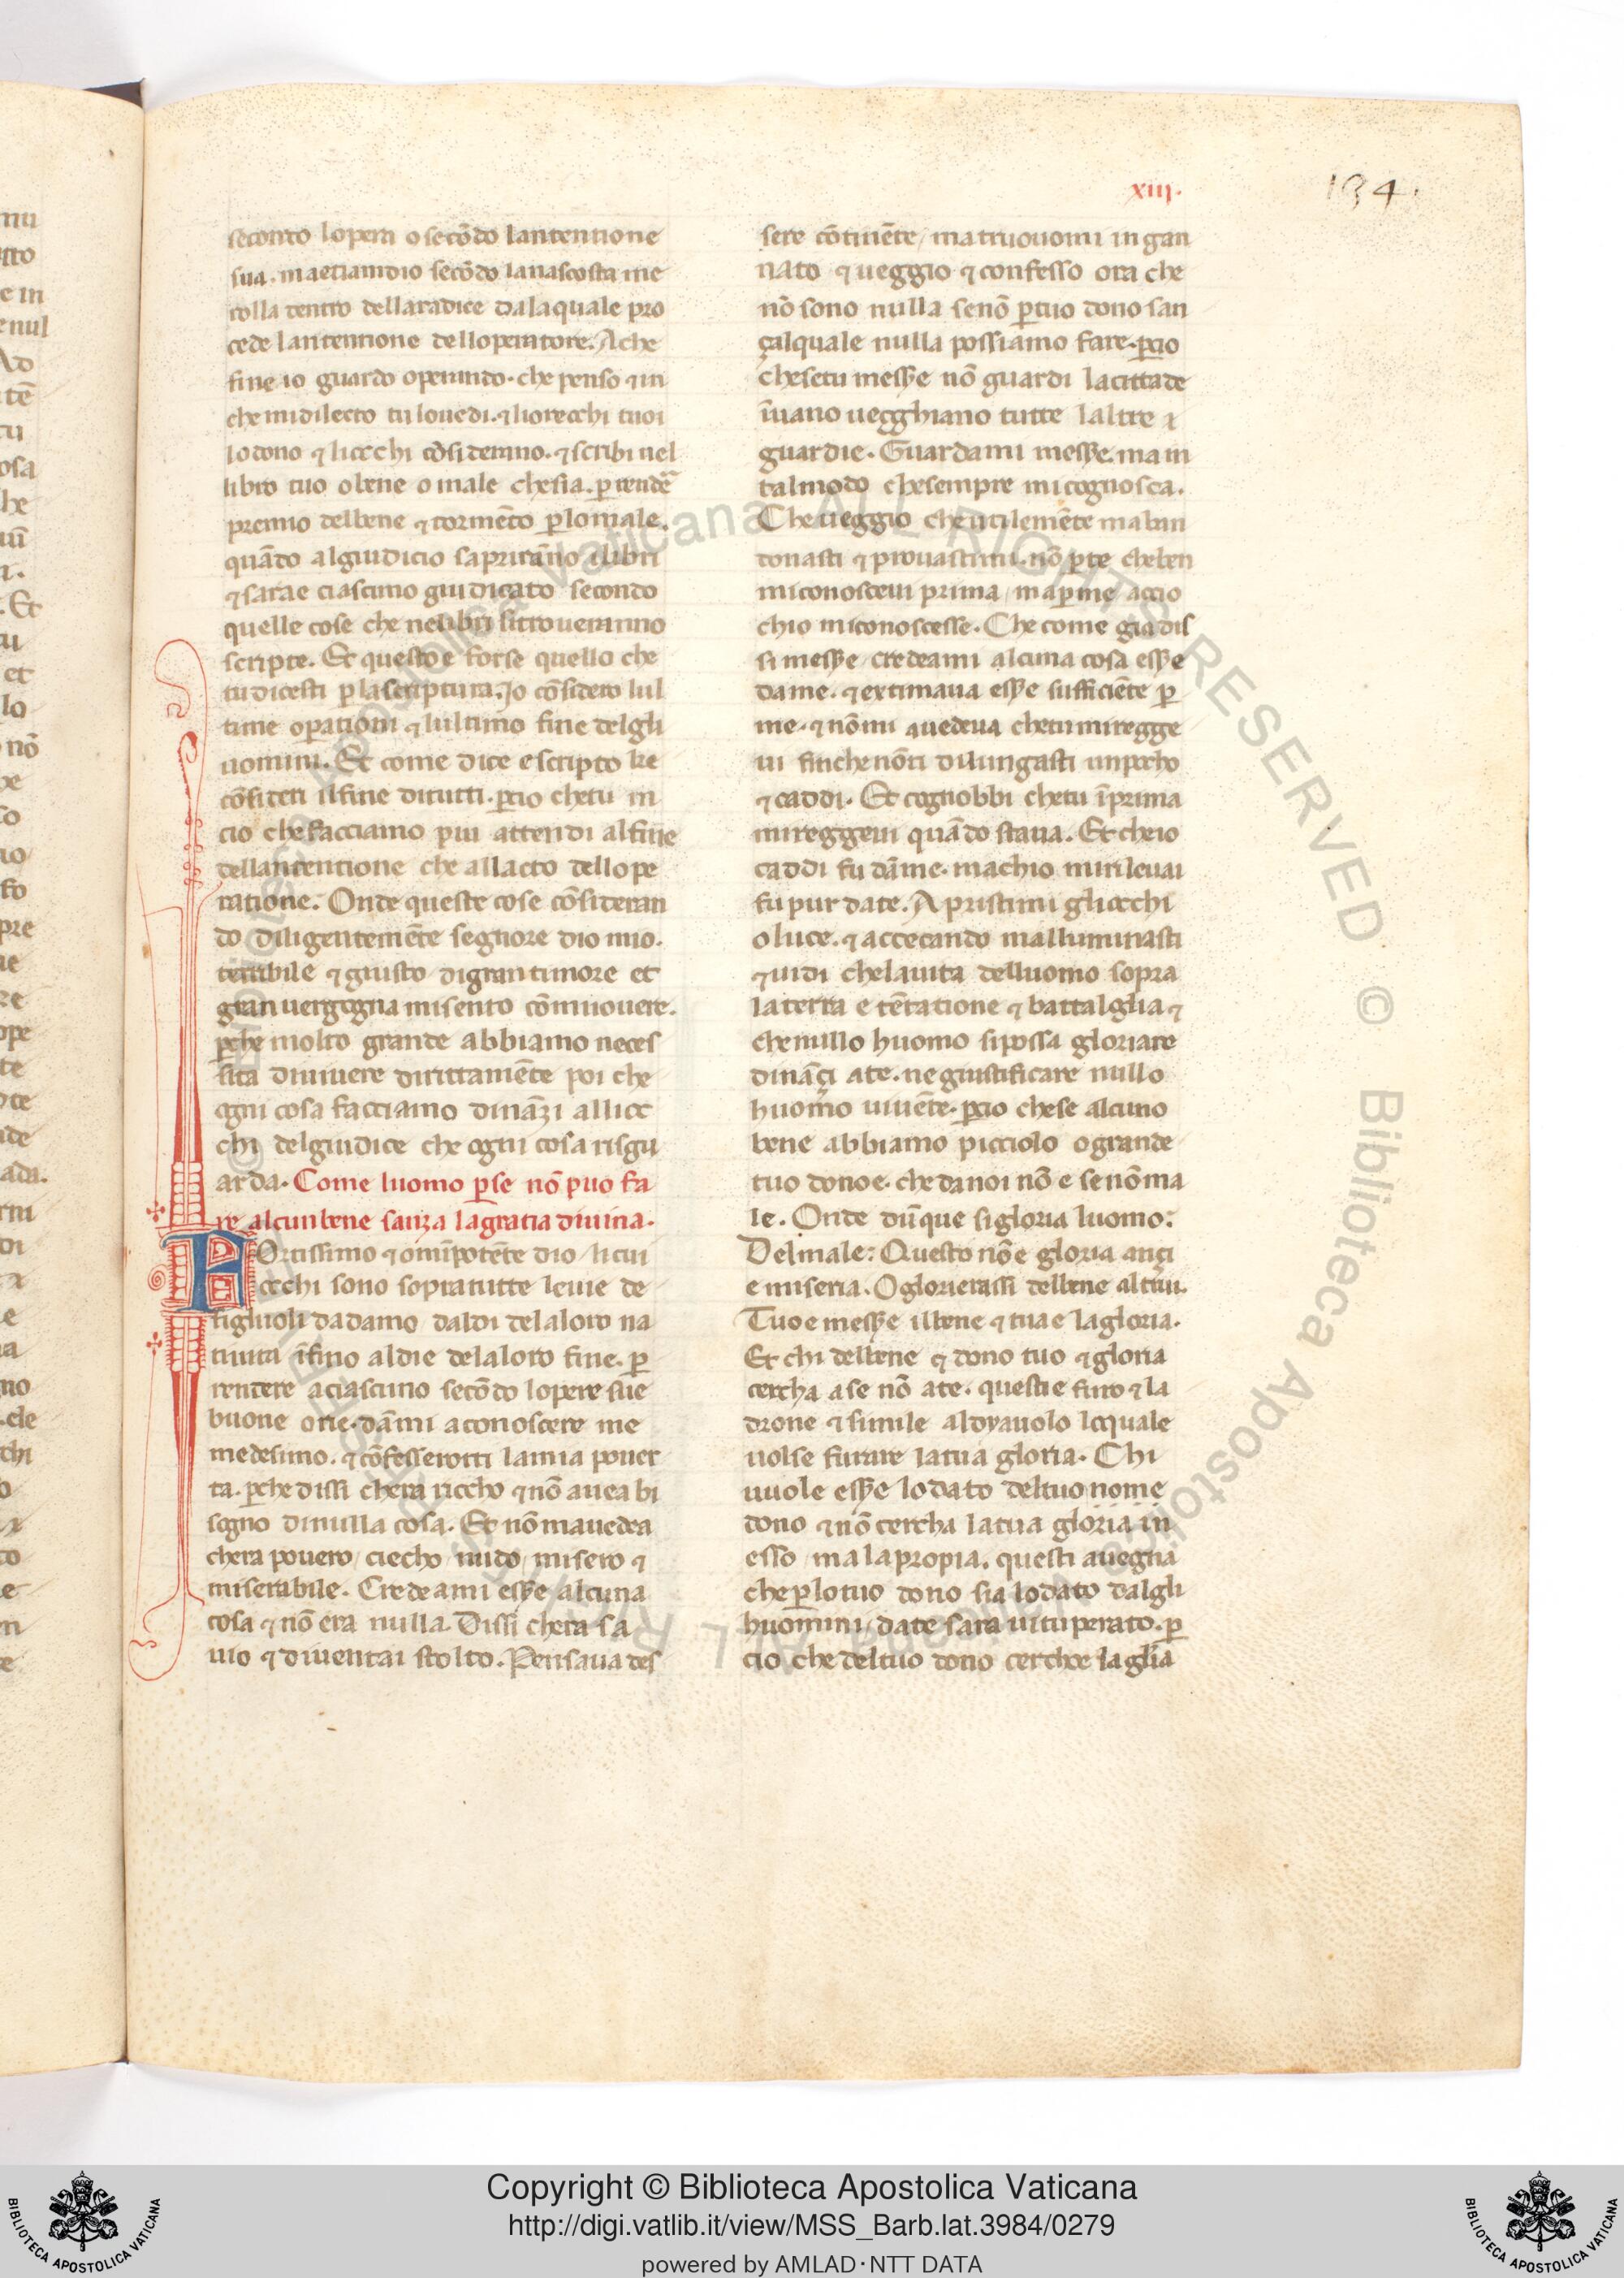 xiij.
134.
secondo lopera o secõdo lantentione
sua. ma etiamdio secõdo la nascosta me
dolla dentro della radice dala quale pro
cede lantentione dell operatore. A che
fine io guardo operando. che penso ⁊ in
che mi dilecto tu lo vedi. ⁊ li orecchi tuoi
lodono ⁊ li occhi cõsiderano. ⁊ scrivi nel
libro tuo o bene o male che sia. p rendẽ
premio del bene ⁊ tormẽto p lo male.
quãdo al giudicio sapriranno i libri
⁊ sarae ciascuno giudicato secondo
quelle cose che ne libri si troveranno
scripte. Et questo e forse quello che
tu dicesti p la scriptura. Jo cõsidero lul
time operationi ⁊ lultimo fine delgli
uomini. Et come dice e scripto
cõsideri il fine di tutti. pcio che tu in
cio che facciamo piu attendi al fine
dell antentione che all acto dell ope
ratione. Onde queste cose cõsideran
do diligentemẽte segnore dio mio.
terribile ⁊ giusto di gran timore et
gran vergogna mi sento cõmuovere.
pche molto grande abbiamo neces
sita di vivere dirittamẽte poi che
ogni cosa facciamo dinãzi alli oc
chi del giudice che ogni cosa risgu
arda. Come luomo p se nõ puo fa
re alcun bene sanza la gratia divina.
Fortissimo ⁊ omnipotẽte dio li cui
occhi sono sopra tutte le vie de
figluoli dadamo dal di dela loro na
tivita ĩfino al die dela loro fine. p
rendere a ciascuno secõdo lopere sue
buone o rie. dãmi a conoscere me
medesimo. ⁊ cõfesserotti la mia pover
ta. pche dissi chera riccho ⁊ nõ avea bi
sogno di nulla cosa. Et nõ mavedea
chera povero, ciecho, nudo, misero ⁊
miserabile. Credeami esse alcuna
cosa ⁊ nõ era nulla. Dissi chera sa
vio ⁊ diventai stolto. Pensava des
sere cõtinẽte, ma truovomi ingan
nato ⁊ veggio ⁊ confesso ora che
nõ sono nulla senõ p tuo dono san
ça l quale nulla possiamo fare. pcio
che se tu messe nõ guardi la cittade
ĩvano vegghiano tutte laltre
guardie. Guardami messe. ma in
tal modo che sempre mi cognosca.
Che veggio che utilemẽte maban
donasti ⁊ provastimi. nõ p te che ben
mi conoscevi prima, ma p me accio
chio mi conoscesse. Che come gia dis
si messe, credeami alcuna cosa esse
da me. ⁊ extimava esse sufficiẽte p
me. ⁊ nõ mi avedeva che tu mi regge
vi finche nõ ti dilungasti un pocho
⁊ caddi. Et cognobbi che tu ĩprima
mi reggevi quãdo stava. Et che io
caddi fu da me. ma chio mi rilevai
fu pur da te. Apristimi gli occhi
o luce. ⁊ accecando malluminasti
⁊ vidi che la vita dell uomo sopra
la terra e tẽtatione ⁊ battaglia ⁊
che nullo huomo si possa gloriare
dinãçi a te. ne giustificare nullo
huomo vivẽte. pcio che se alcuno
bene abbiamo picciolo o grande
tuo dono e. che da noi nõ e se nõ ma
le. Onde dũque si gloria luomo:
Del male: Questo nõ e gloria ançi
e miseria. O glorierassi del bene altrui.
Tuo e messe il bene ⁊ tua e la gloria.
Et chi del bene ⁊ dono tuo ⁊ gloria
cercha a se nõ a te. questi e furo ⁊ la
drone ⁊ simile al dyavolo loquale
volse furare la tua gloria. Chi
vuole esse lodato del tuo nome
dono ⁊ nõ cercha la tua gloria in
esso, ma la propia. questi avegna
che p lo tuo dono sia lodato dalgli
huomini, da te sara vituperato. p
cio che del tuo dono cerchoe la glia
Copyright © Biblioteca Apostolica Vaticana
http://digi.vatlib.it/view/MSS_Barb.lat.3984/0279
powered by AMLAD·NTT DATA